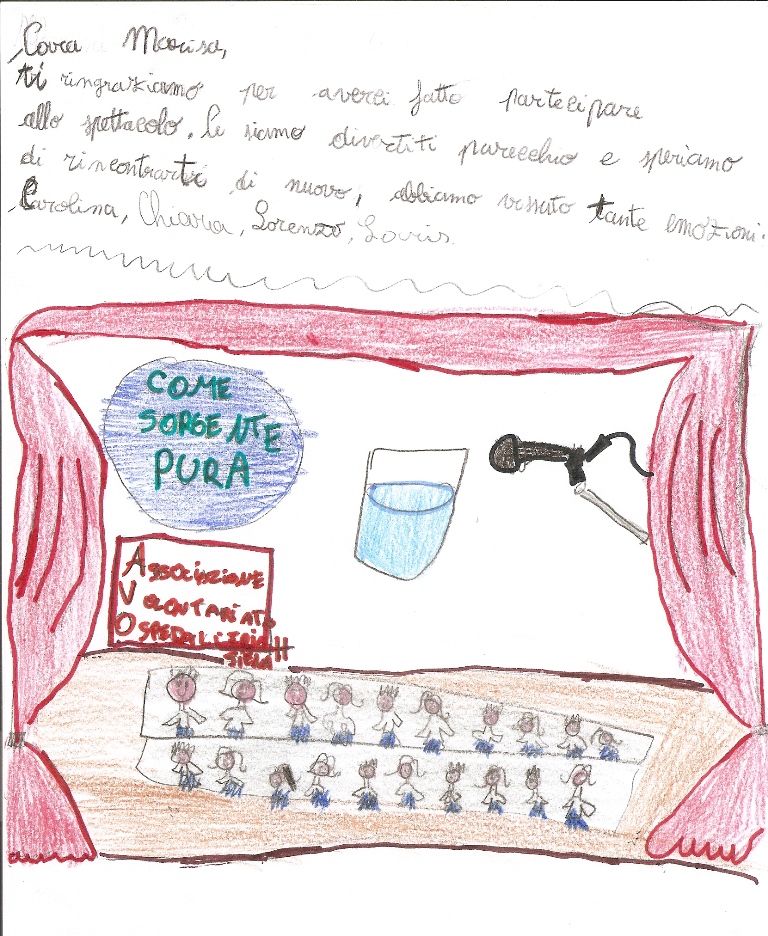 Cara Marisa,
ti ringraziamo per averci fatto partecipare
allo spettacolo. Ci siamo divertiti parecchio e speriamo
di rincontrarti di nuovo, abbiamo vissuto tante emozioni.
Carolina, Chiara, Lorenzo, Loris.
COME
SORGENTE
PURA
ASSOCIAZIONE
VOLONTARIATO
OSPEDALIERIA